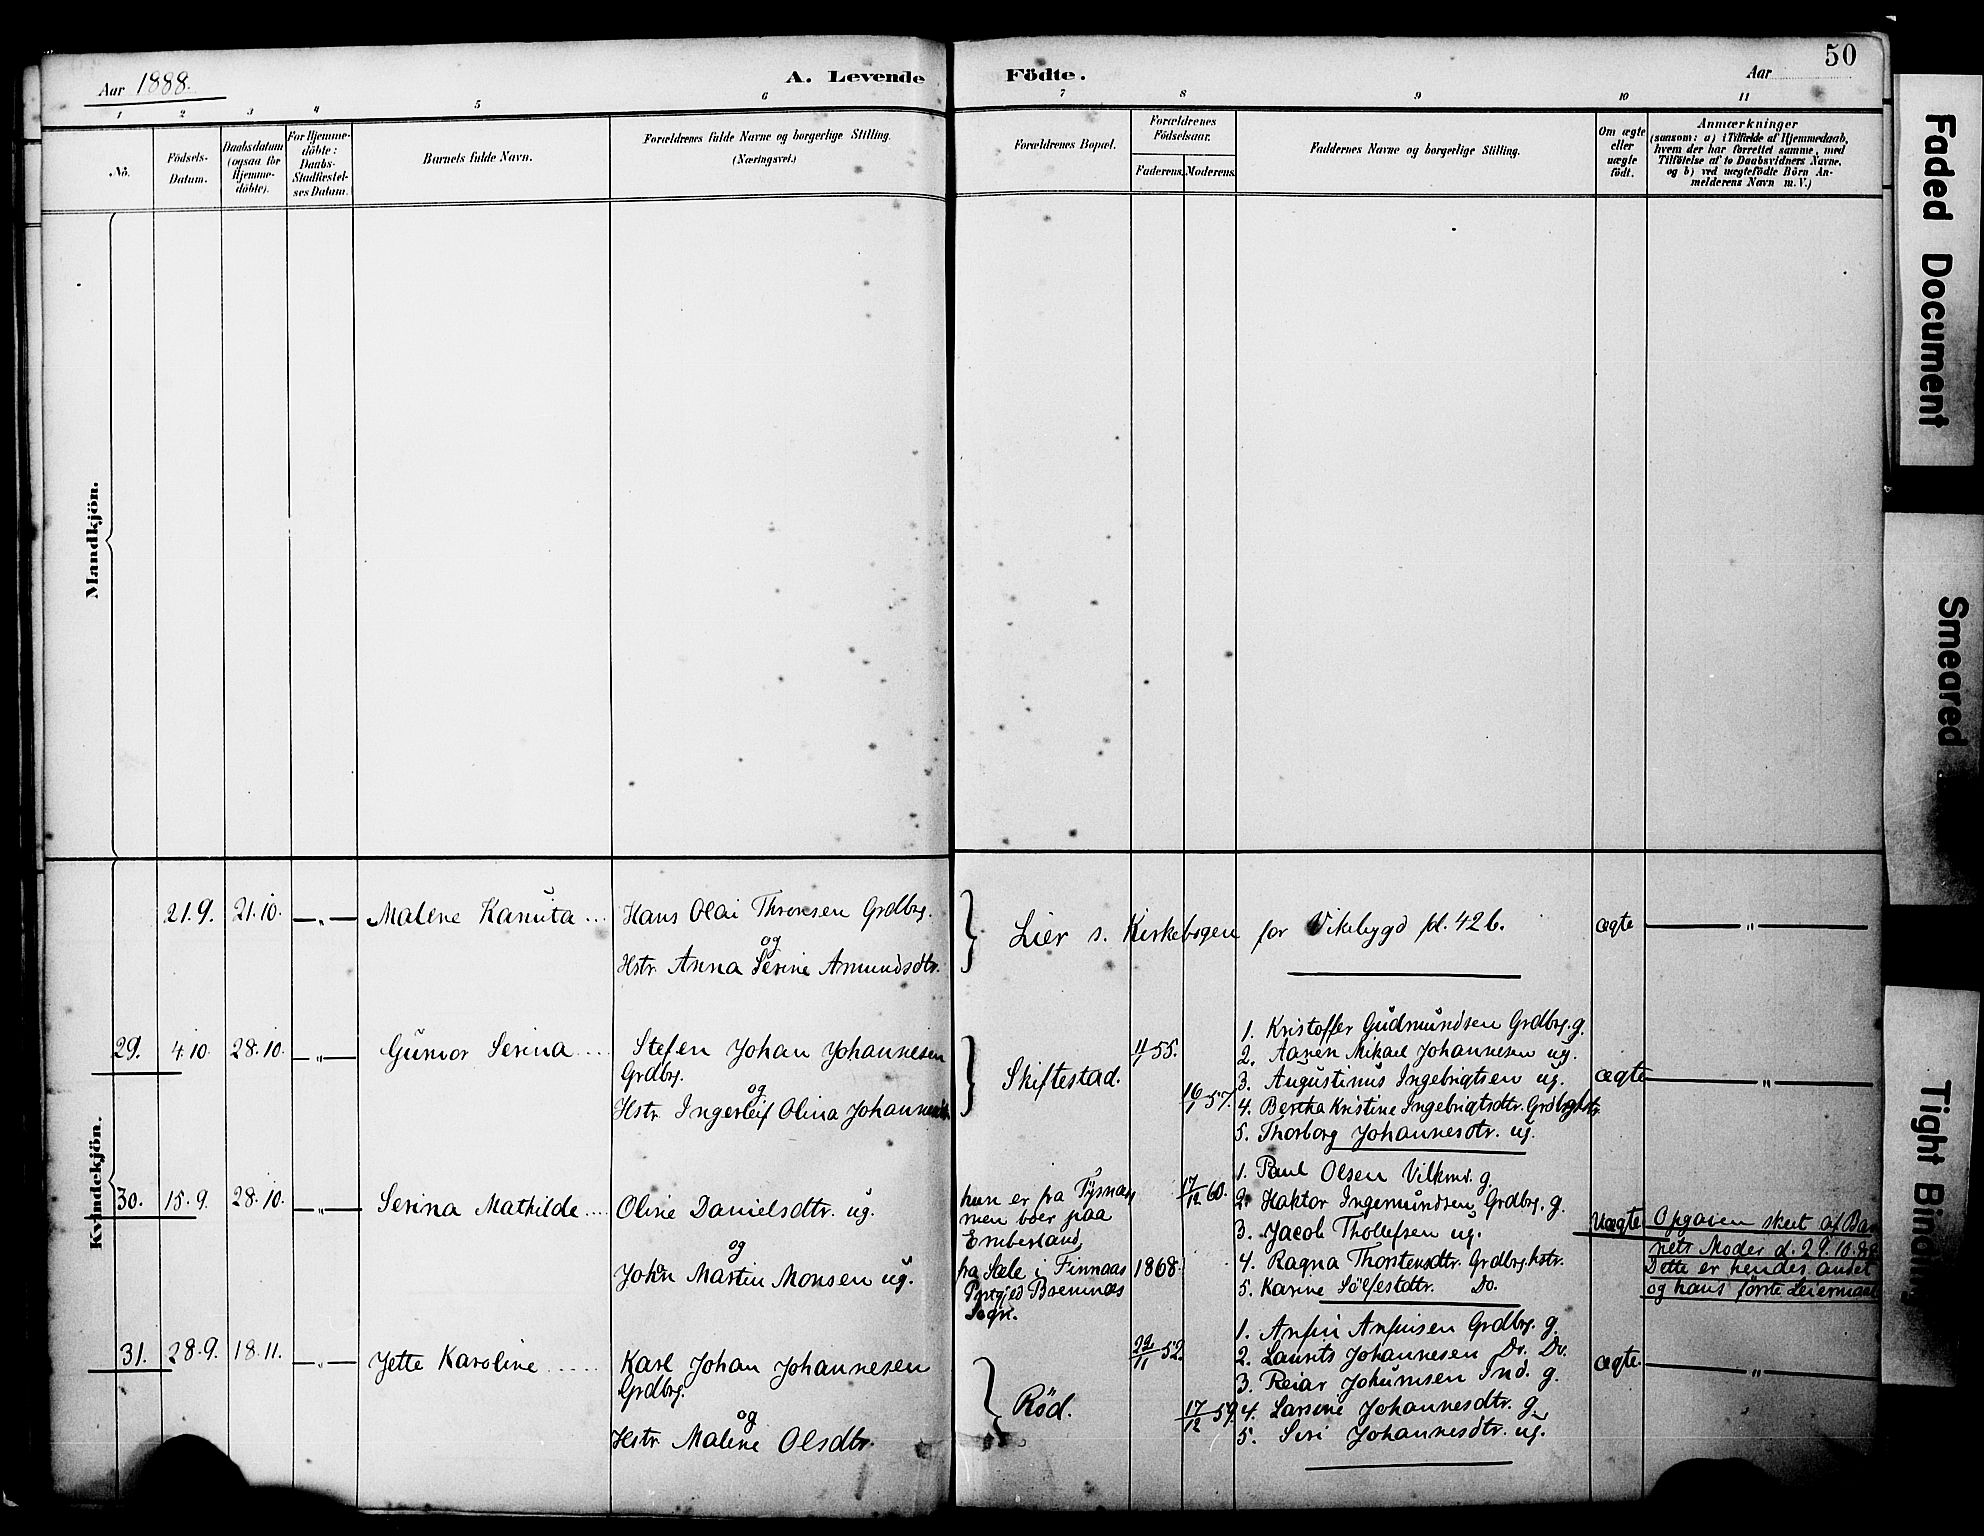 50
Aar 1888.
A. Levende Födte.
Aar
1 2 3 4 5 6 7 8 9 10 11
No.
Födsels-
Datum.
Daabsdatum
(ogsaa for
Hjemme-
döbte).
For Hjemme-
döbte:
Daabs-
Stadfæstel-
ses Datum.
Barnets fulde Navn.
Forældrenes fulde Navne og borgerlige Stilling.
(Næringsvei.)
Forældrenes Bopæl.
Forældrenes
Födselsaar.
Faderens. Moderens.
Faddernes Navne og borgerlige Stilling.
Om ægte
eller
uægte
født.
Anmærkninger
(saasom: a) i Tilfælde af Hjemmedaab,
hvem der har forrettet samme, med
Tilföielse af to Daabsvidners Navne.
og b) ved uægtefödte Börn An-
melderens Navn m. V.)
Mandkjön.
Kvindekjön.
21.9. 21.10. — „ — Malene Kanuta ... Hans Olai Thronsen Grdbrg.
og
Hstr. Anna Serine Amundsdtr.
Lier s. Kirkebogen for Vikebygd fol. 42 b. ægte — „ —
29. 4.10 28.10. — „ — Gunvor Serina ... Stefen Johan Johannesen
Grdbrg.
og
Hstr. Ingerleif Olina Johannesdtr.
Skiftestad.
55.
16/1 57.
1. Kristoffer Gudmundsen Grdbrg. g.
2. Aanen Mikael Johannesen ug.
3. Augustinus Ingebrigtsen ug.
4. Bertha Kristine Ingebrigtsdtr. Grdbrghstr
5. Thorborg Johannesdtr. ug.
ægte — „ —
30. 15.9. 28.10. — „ — Serina Mathilde .... Oline Danielsdtr. ug.
og
John Martin Monsen ug.
hun er fra Tysnæs
men boer paa
Emberland
fra Sæle i Finnaas
Prstgjld Bremnæs
Sogn.
1868.
17/12 60.
1. Paul Olsen g.
2. Haktor Ingemundsen Grdbrg. g.
3. Jacob Thollefsen ug.
4. Ragna Thorstensdtr. Grdbrg.hstr.
5. Karine Sölfestdtr. Do.
Uægte
Opgaven skeet af Bar
nets Moder d. 29.10.88
Dette er hendes andet
og hans første Leiermaal
31. 28.9. 18.11. — „ — Jette Karoline ..... Karl Johan Johannesen
Grdbrg.
og
Hstr Malene Olsdtr.
Röd.
22/11 52.
17/12 59.
1. Anfin Anfinsen Grdbrg. g.
2. Laurits Johannesen Do. Do.
3. Reiar Johannesen Ind. g.
4. Larsine Johannesdtr. g.
5. Siri Johannesdtr. ug.
ægte. — „ —
Faded Document
Smeared
Tight Binding